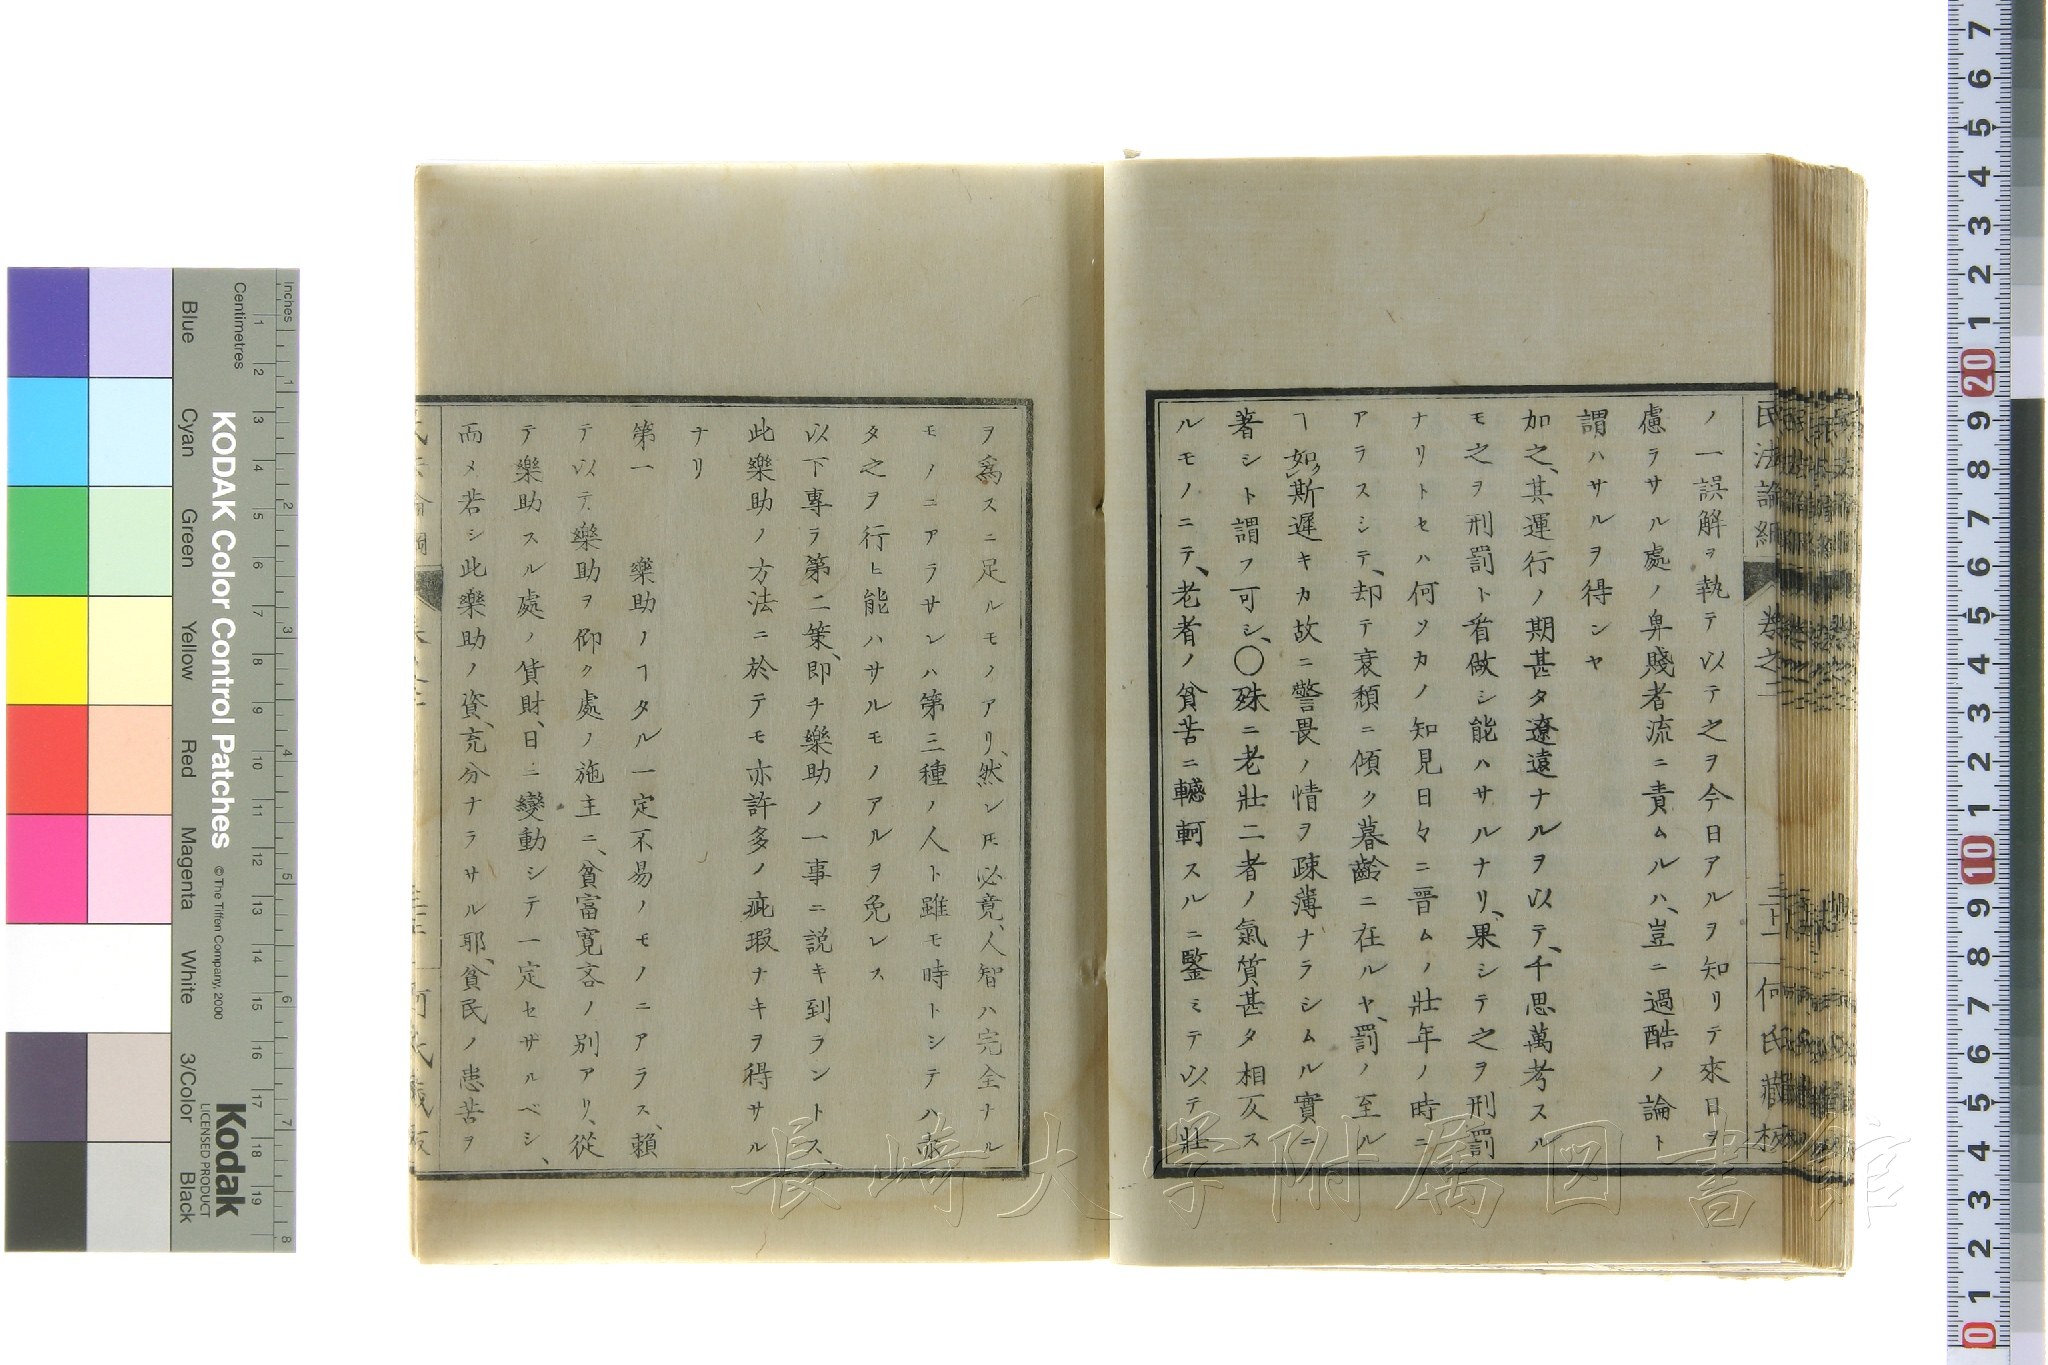 民法論綱 卷之二 三十一 何氏藏板
ノ一誤解ヲ執テ以テ之ヲ今日アルヲ知リテ來日ヲ
慮ラサル處ノ卑賤者流ニ責ムルハ、豈ニ過酷ノ論ト
謂ハサルヲ得ンヤ
加之、其運行ノ期甚タ遼遠ナルヲ以テ、千思萬考スル
モ之ヲ刑罰ト看做シ能ハサルナリ、果シテ之ヲ刑罰
ナリトセハ何ソカノ知見日々ニ晋ムノ壯年ノ時ニ
アラスシテ、却テ衰頽ニ傾ク暮齡ニ在ルヤ、罰ノ至ル
ヿ如斯遲キカ故ニ警畏ノ情ヲ疎薄ナラシムル實ニ
著シト謂フ可シ、〇殊ニ老壯二者ノ氣質甚タ相反ス
ルモノニテ、老者ノ貧苦ニ轗軻スルニ鑒ミテ以テ壯
ヲ爲スニ足ルモノアリ、然レ𪜈必竟、人智ハ完全ナル
モノニアラサレハ第三種ノ人ト雖モ時トシテハ亦
タ之ヲ行ヒ能ハサルモノアルヲ免レス
以下專ラ第二策、即チ樂助ノ一事ニ説キ到ラントス、
此樂助ノ方法ニ於テモ亦許多ノ疵瑕ナキヲ得サル
ナリ
第一 樂助ノヿタル一定不易ノモノニアラス、賴
テ以テ樂助ヲ仰ク處ノ施主ニ、貧富寛吝ノ別アリ、從
テ樂助スル處ノ貨財、日ニ變動シテ一定セザルベシ、
而〆若シ此樂助ノ資、充分ナラサル耶、貧民ノ患苦ヲ
長崎大学附属図書館
KODAK Color Control Patches
© The Tiffen Company, 2000
Kodak
LICENSED PRODUCT
Inches
Centimetres
Blue Cyan Green Yellow Red Magenta White 3/Color Black
1 2 3 4 5 6 7 8 9 10 11 12 13 14 15 16 17 18 19
1 2 3 4 5 6 7 8
7 6 5 4 3 2 1 20 9 8 7 6 5 4 3 2 1 10 9 8 7 6 5 4 3 2 1 0